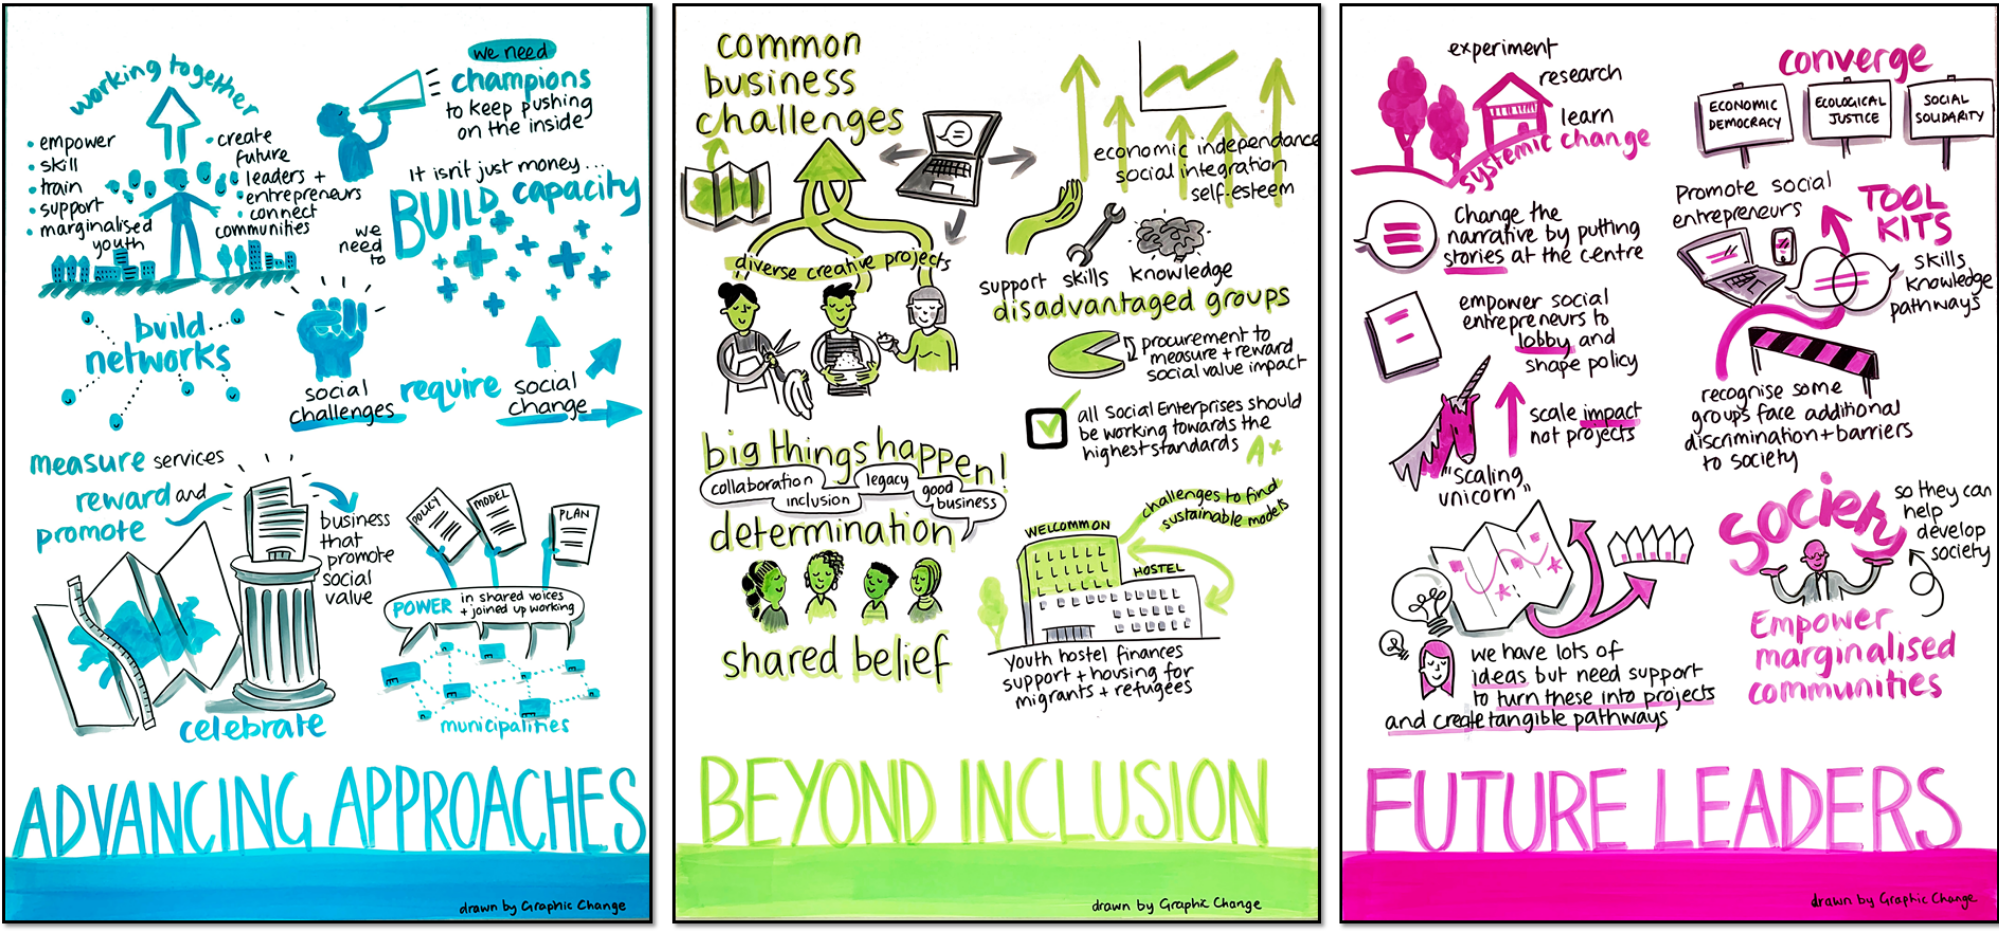 working together
• empower
• skill
• train
• support
• marginalised
youth
• create
future
leaders +
• entrepreneurs
• connect
communities
we need
champions
to keep pushing
on the inside
It isn't just money...
we
need
to
BUILD capacity
build
networks
social
challenges
require
social
change
measure services
reward and
promote
business
that
promote
social
value
celebrate
POLICY
MODEL
PLAN
POWER in shared voices
+ joined up working
municipalities
ADVANCING APPROACHES
drawn by Graphic Change
common
business
challenges
diverse creative projects
economic independance
social integration
self-esteem
support skills knowledge
disadvantaged groups
procurement to
measure + reward
social value impact
all Social Enterprises should
be working towards the
highest standards
A*
big things happen!
collaboration
inclusion
legacy
good
business
determination
shared belief
challenges to find
sustainable models
WELCOMMON
HOSTEL
Youth hostel finances
support + housing for
migrants + refugees
BEYOND INCLUSION
drawn by Graphic Change
experiment
research
learn
change
systemic
Change the
narrative by putting
stories at the centre
empower social
entrepreneurs to
lobby and
shape policy
scale impact
not projects
"scaling
unicorn"
we have lots of
ideas but need support
to turn these into projects
and create tangible pathways
converge
ECONOMIC
DEMOCRACY
ECOLOGICAL
JUSTICE
SOCIAL
SOLIDARITY
Promote social
entrepreneurs
TOOL
KITS
skills
knowledge
pathways
recognise some
groups face additional
discrimination + barriers
to society
society
so they can
help
develop
society
Empower
marginalised
communities
FUTURE LEADERS
drawn by Graphic Change